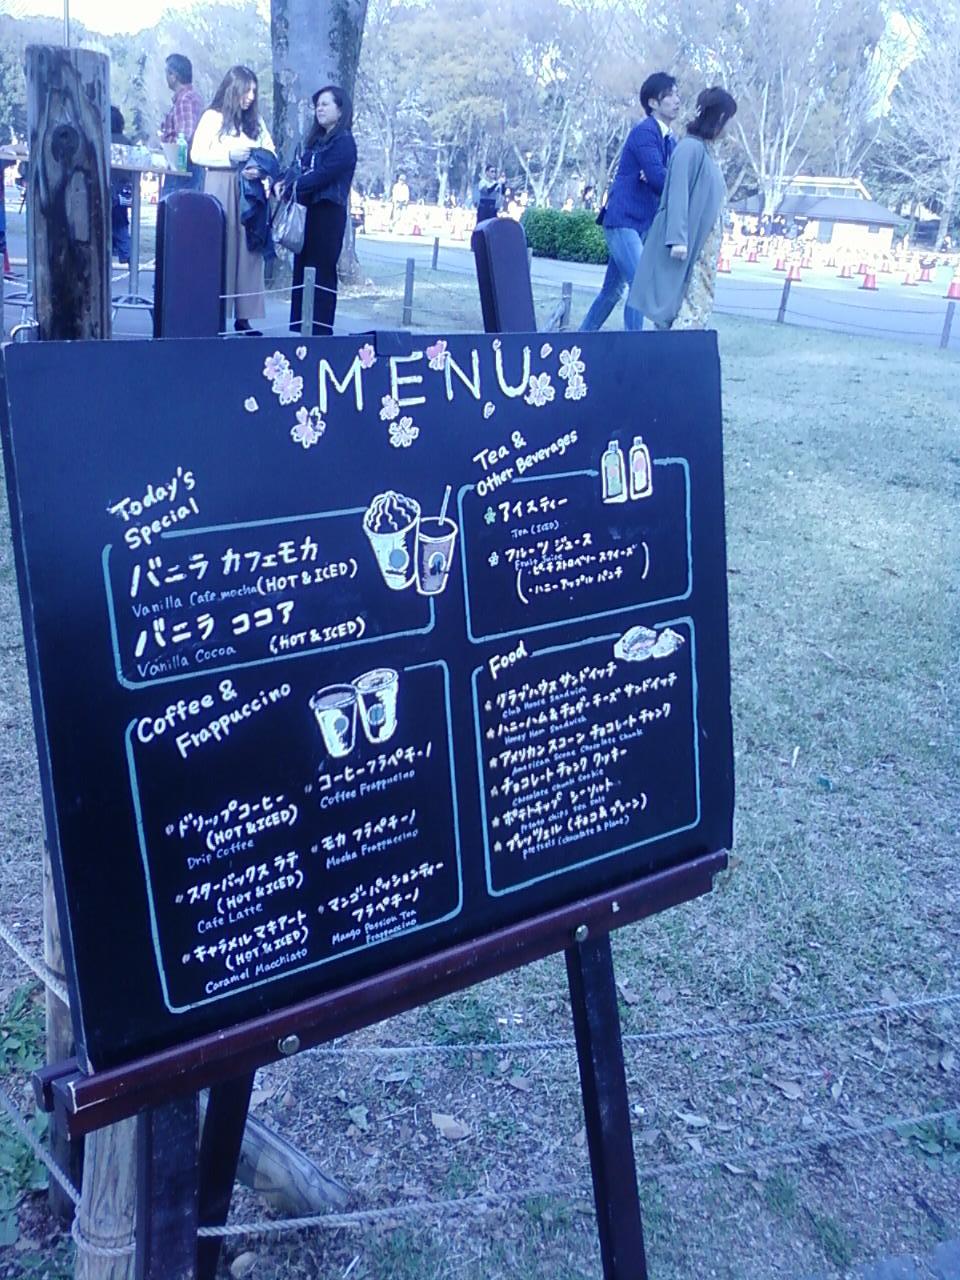 MENU
Today's
Special
バニラ カフェモカ
Vanilla Cafe mocha (HOT & ICED)
バニラ ココア
Vanilla Cocoa (HOT & ICED)
Tea &
Other Beverages
アイスティー
Tea (ICED)
フルーツ ジュース
Fruit Juice
・ピーチ ストロベリー スライーズ
・ハニーアップル パンチ
Coffee &
Frappuccino
ドリップコーヒー
(HOT & ICED)
Drip Coffee
スターバックス ラテ
(HOT & ICED)
Cafe Latte
キャラメル マキアート
(HOT & ICED)
Caramel Macchiato
コーヒーフラペチーノ
Coffee Frappucino
モカ フラペチーノ
Mocha Frappuccino
マンゴーパッションティー
フラペチーノ
Mango Passion Tea
Frappuccino
Food
クラブハウス サンドイッチ
Club House Sandwich
ハニーハム & チェダーチーズ サンドイッチ
Honey Ham Sandwich
アメリカン スコーン チョコレート チャンク
American Scone Chocolate Chunk
チョコレート チャンク クッキー
Chocolate Chunk Cookie
ポテトチップ シーソルト
Potato chips Sea Salt
プレッツェル (チョコ & プレーン)
pretzels (chocolate & Plane)